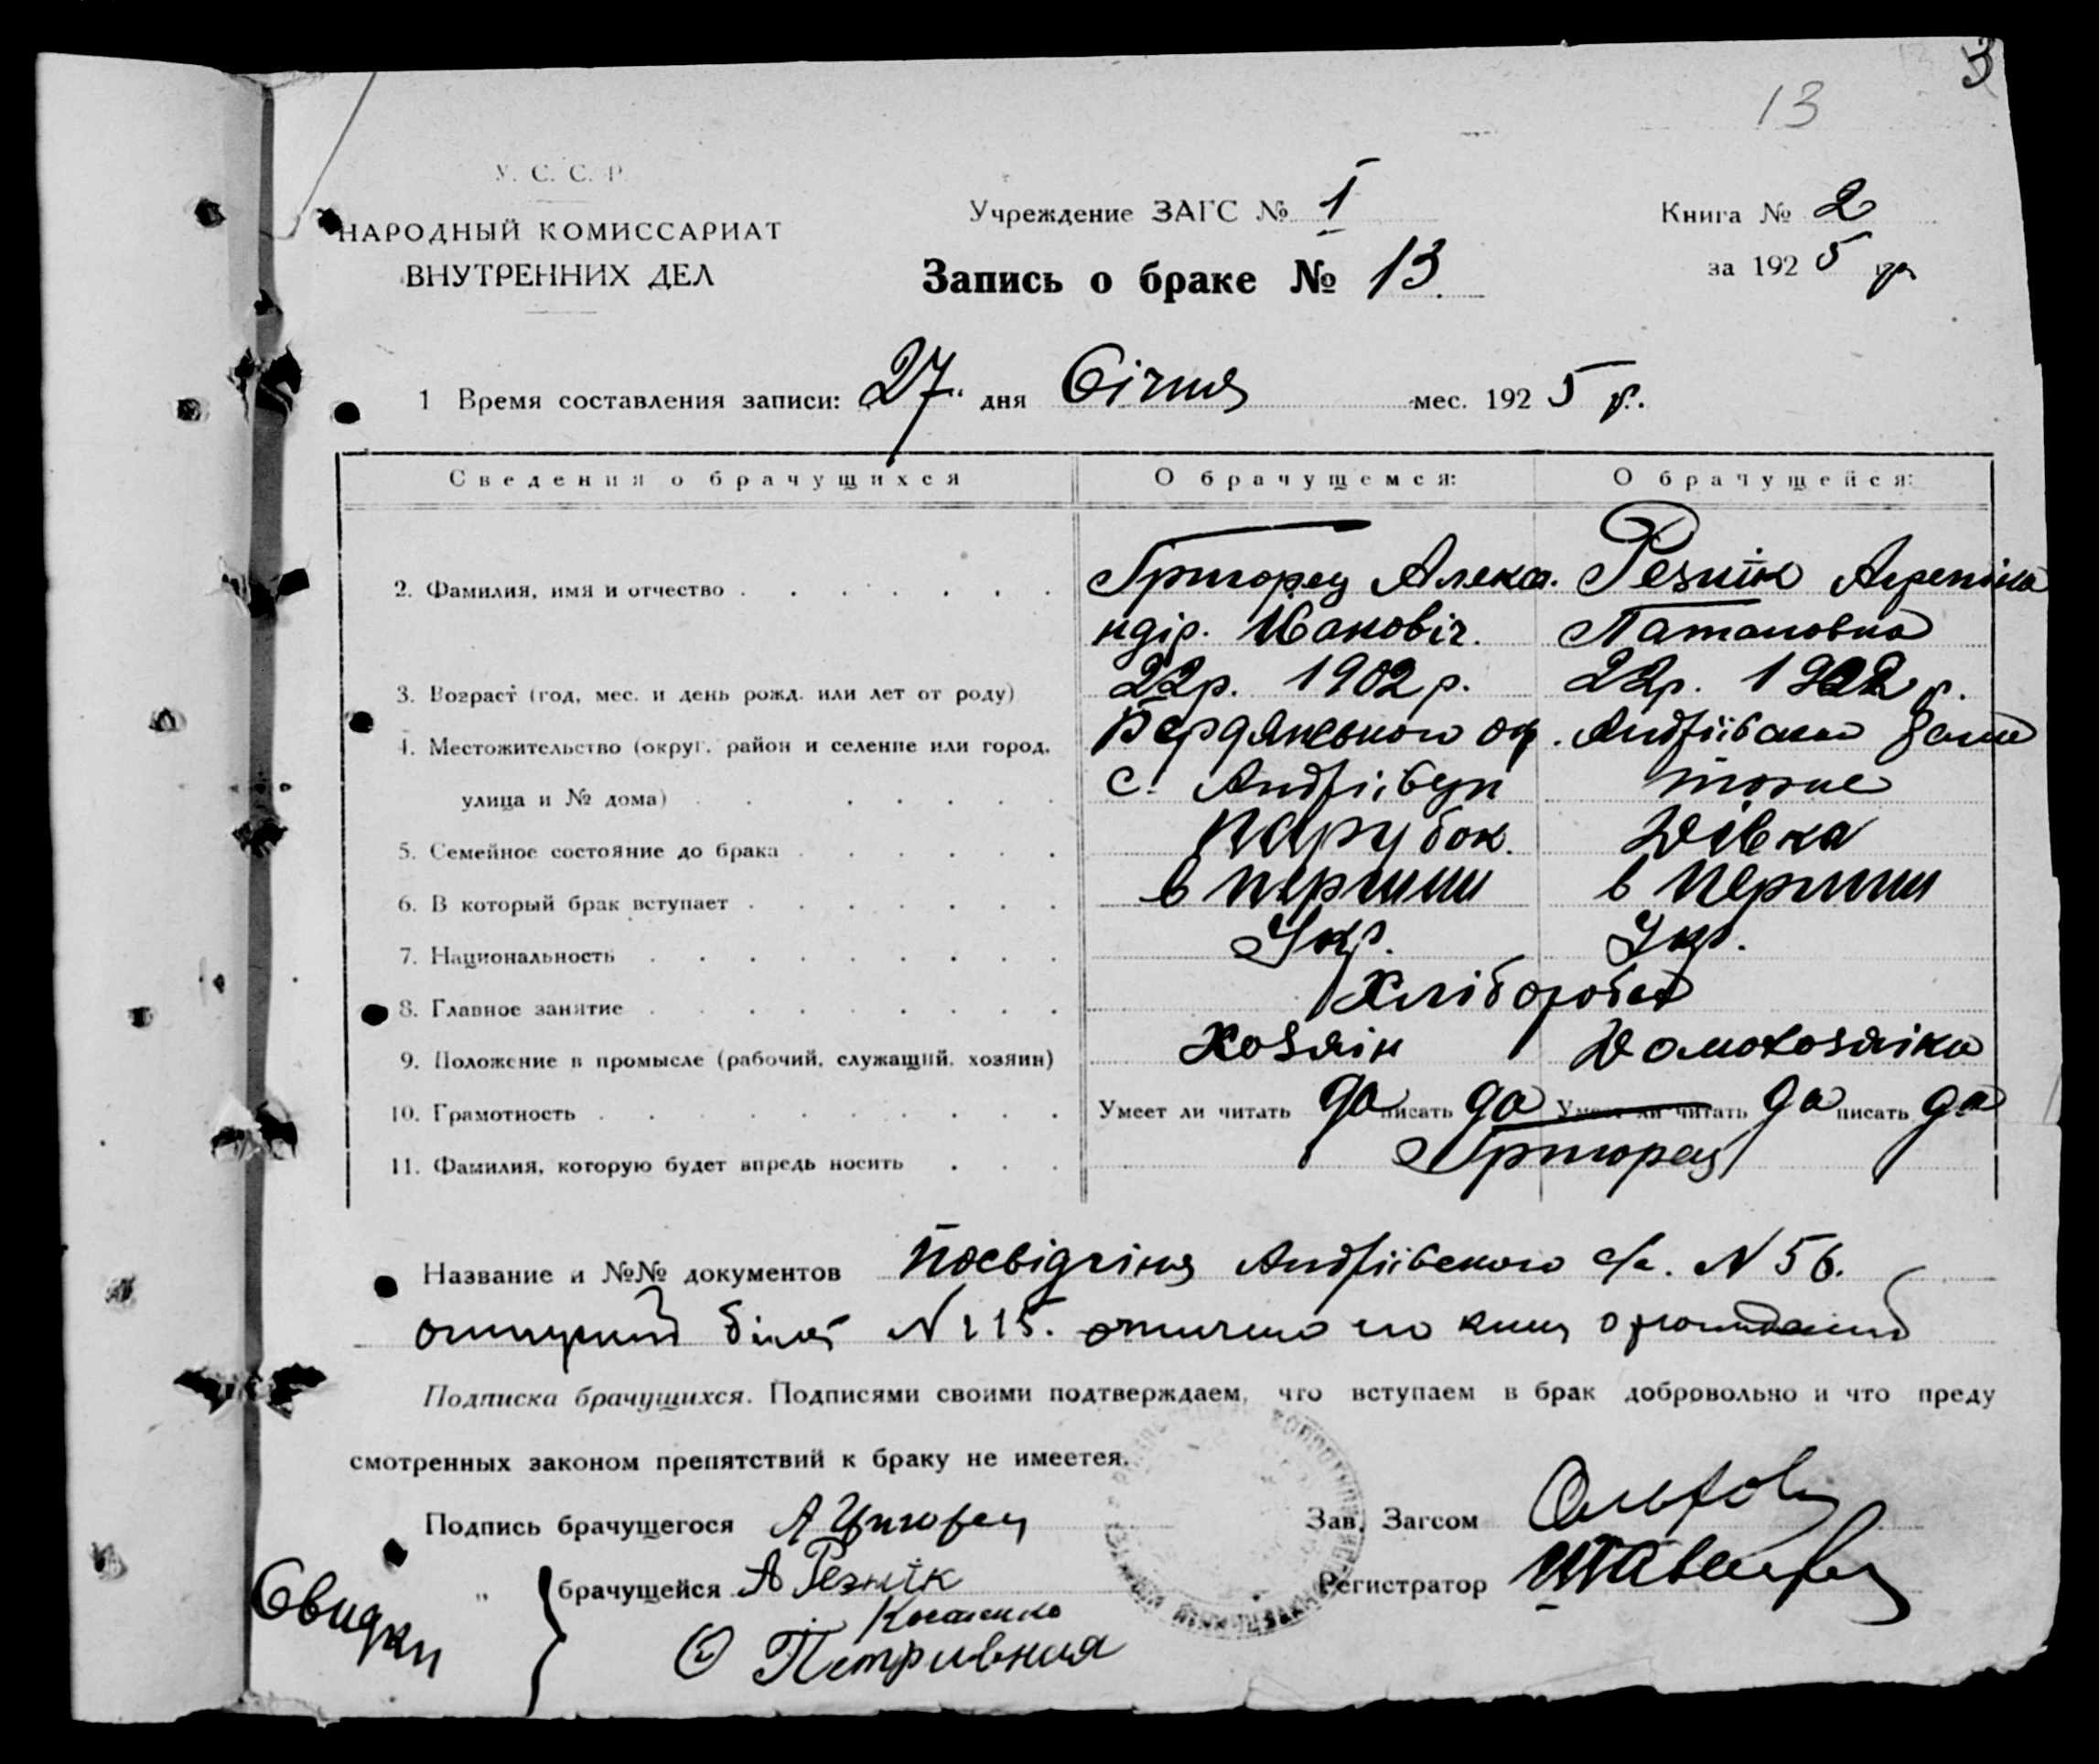 3
13
У. С. С. Р.
НАРОДНЫЙ КОМИССАРИАТ
ВНУТРЕННИХ ДЕЛ
Учреждение ЗАГС № 1
Запись о браке № 13.
Книга № 2
за 1925 р.
1 Время составления записи: 27 дня Січня мес. 1925 р.
Сведения о брачущихся О брачущемся: О брачущейся:
2. Фамилия, имя и отчество Григорец Алекса- Резнік
ндір. Иванович. Патаповна
3. Возраст (год, мес. и день рожд. или лет от роду) 22р. 1902 р. 22р. 1902 р.
4. Местожительство (округ, район и селение или город, Бердянського окр.
улица и № дома) с. Андріівци тоже
5. Семейное состояние до брака Парубок. Дівка
6. В который брак вступает в перший в перший
7. Национальность Укр. Укр.
8. Главное занятие Хлібороби
9. Положение в промысле (рабочий, служащий, хозяин) Хозяін Домохозяіка
10. Грамотность Умеет ли читать да писать да Умеет ли читать да писать да
11. Фамилия, которую будет впредь носить Григорец
Название и №№ документов Посвідчіня Андріівского с/р. N 56.
білет N 115.
Подписка брачущихся. Подписями своими подтверждаем, что вступаем в брак добровольно и что преду
смотренных законом препятствий к браку не имеется.
Подпись брачущегося А Григорец
Зав. Загсом
" брачущейся А Резнік
Регистратор
Свидки